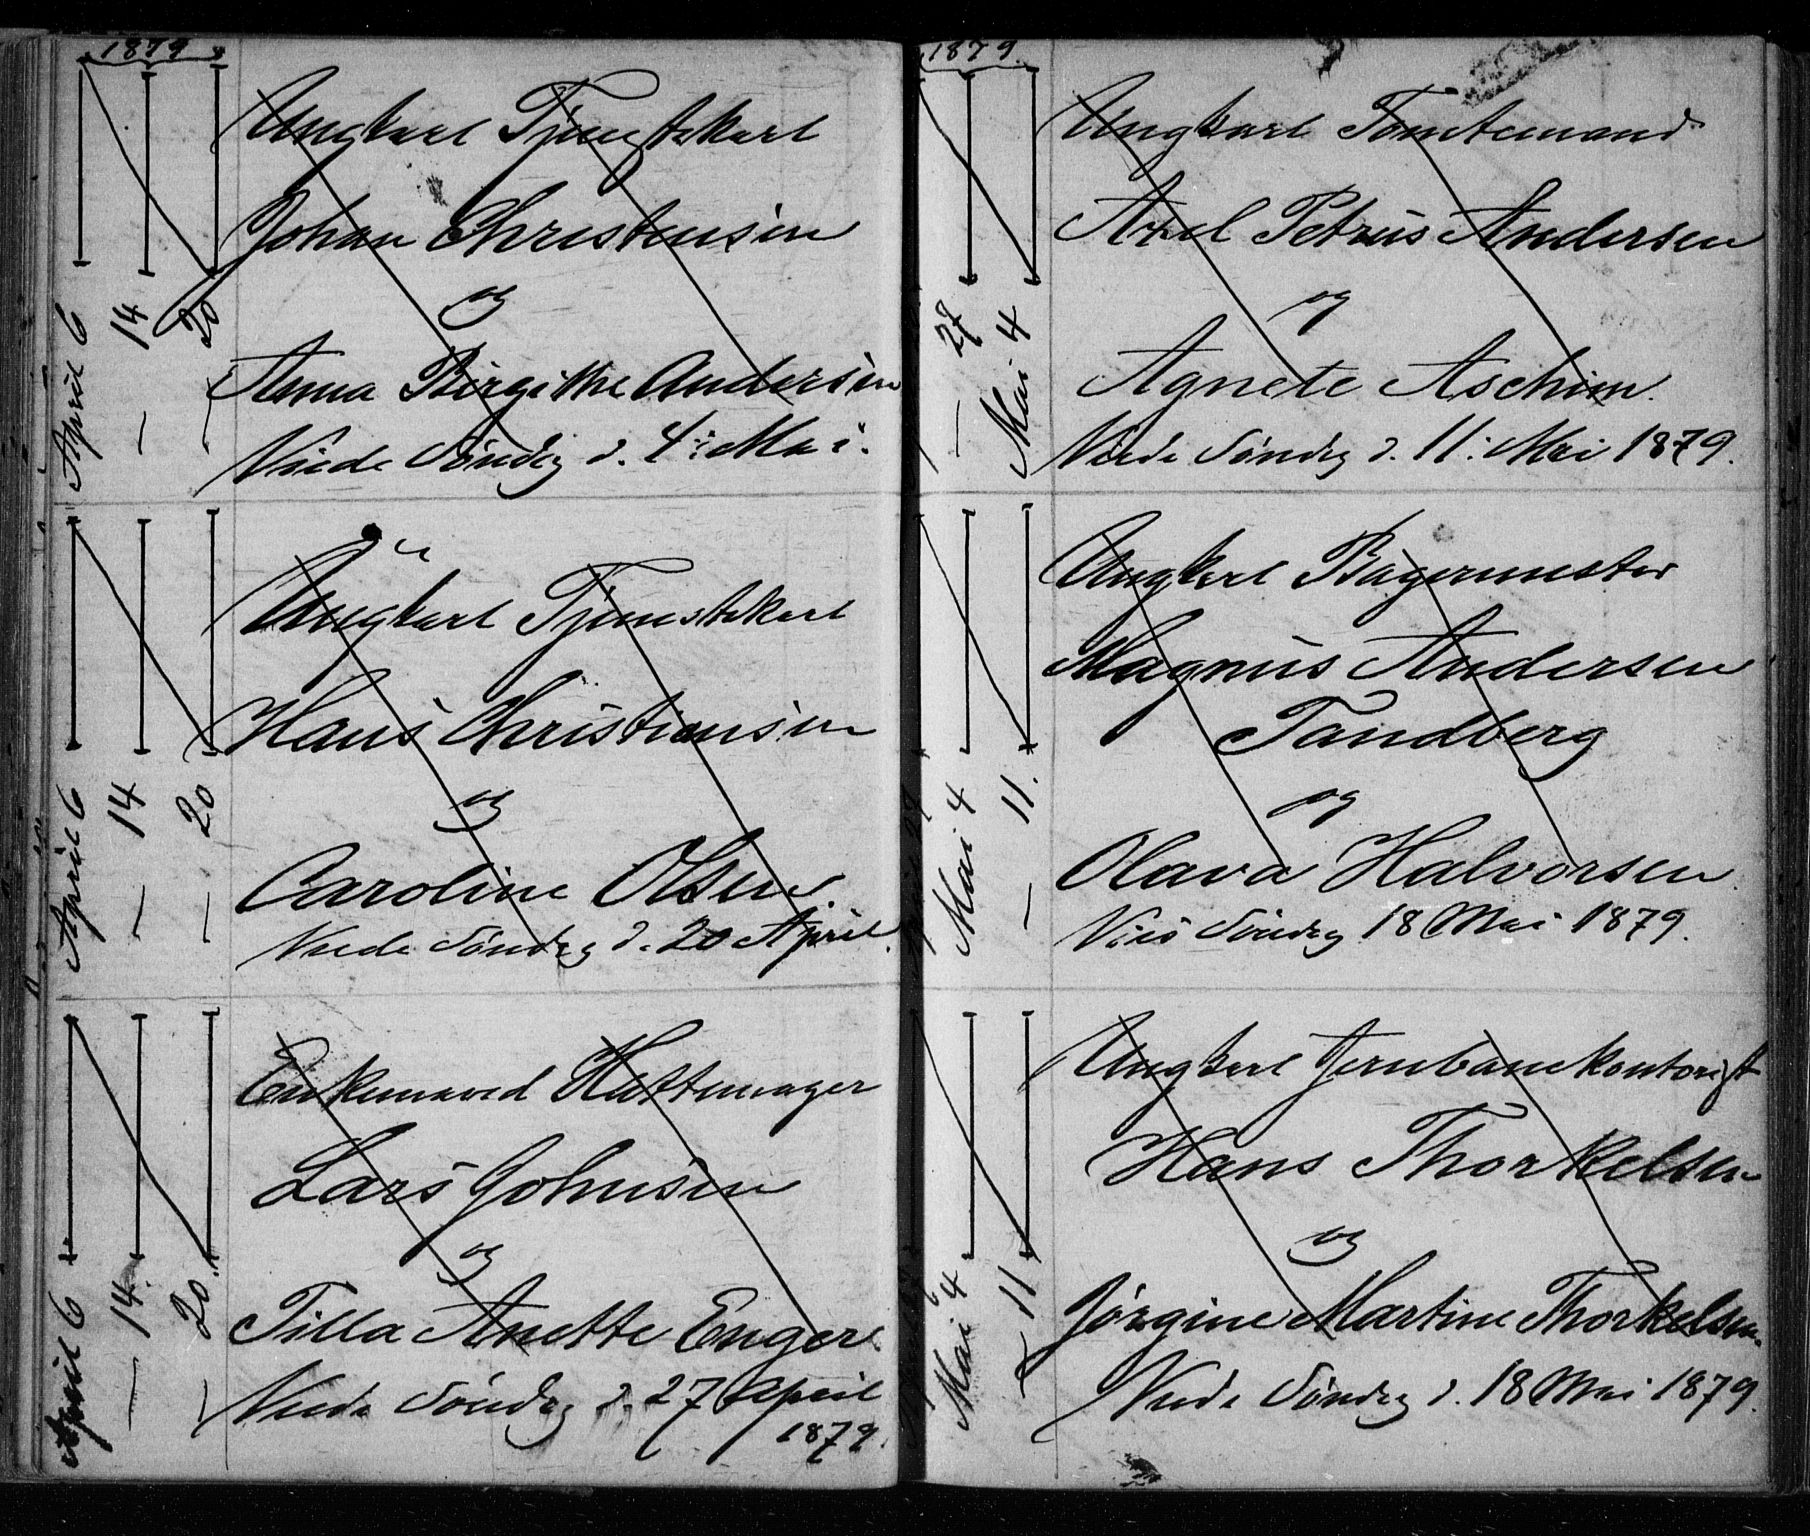 1879
April 6
— 14
— 20
Ungkarl Tjenestekarl
Johan Christensen
og
Anna Birgitte Andersen
Viede Søndag d. 4: Mai.
April 6
— 14
— 20
Ungkarl Tjenestekarl
Hans Christiansen
og
Caroline Olsen.
Viede Søndag d. 20 April.
April 6
— 14.
— 20.
Enkemand Hattemager
Lars Johnsen
og
Tilla Anette Enger.
Viede Søndag d. 27 April
1879.
1879.
— 27
Mai 4
Ungkarl Tomtemand
Axel Petrus Andersen
og
Agnete Aschim.
Viede Søndag d. 11: Mai 1879.
Mai 4
— 11.
Ungkarl Bagermester
Magnus Andersen
Tandberg
og
Olava Halvorsen.
Vies Søndag 18 Mai 1879.
Mai 4
— 11
Ungkarl Jernbanekontorist
Hans Thorkelsen
og
Jørgine Martine Thorkelsen.
Viede Søndag d. 18 Mai 1879.